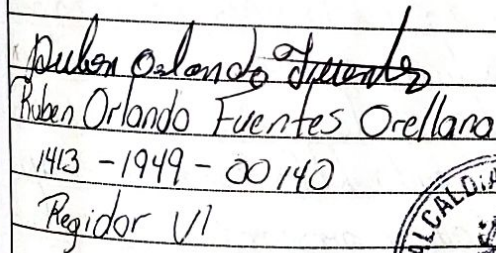 Ruben Orlando Fuentes
Ruben Orlando Fuentes Orellana
1413 - 1949 - 00140
Regidor VI
ALCALDIA